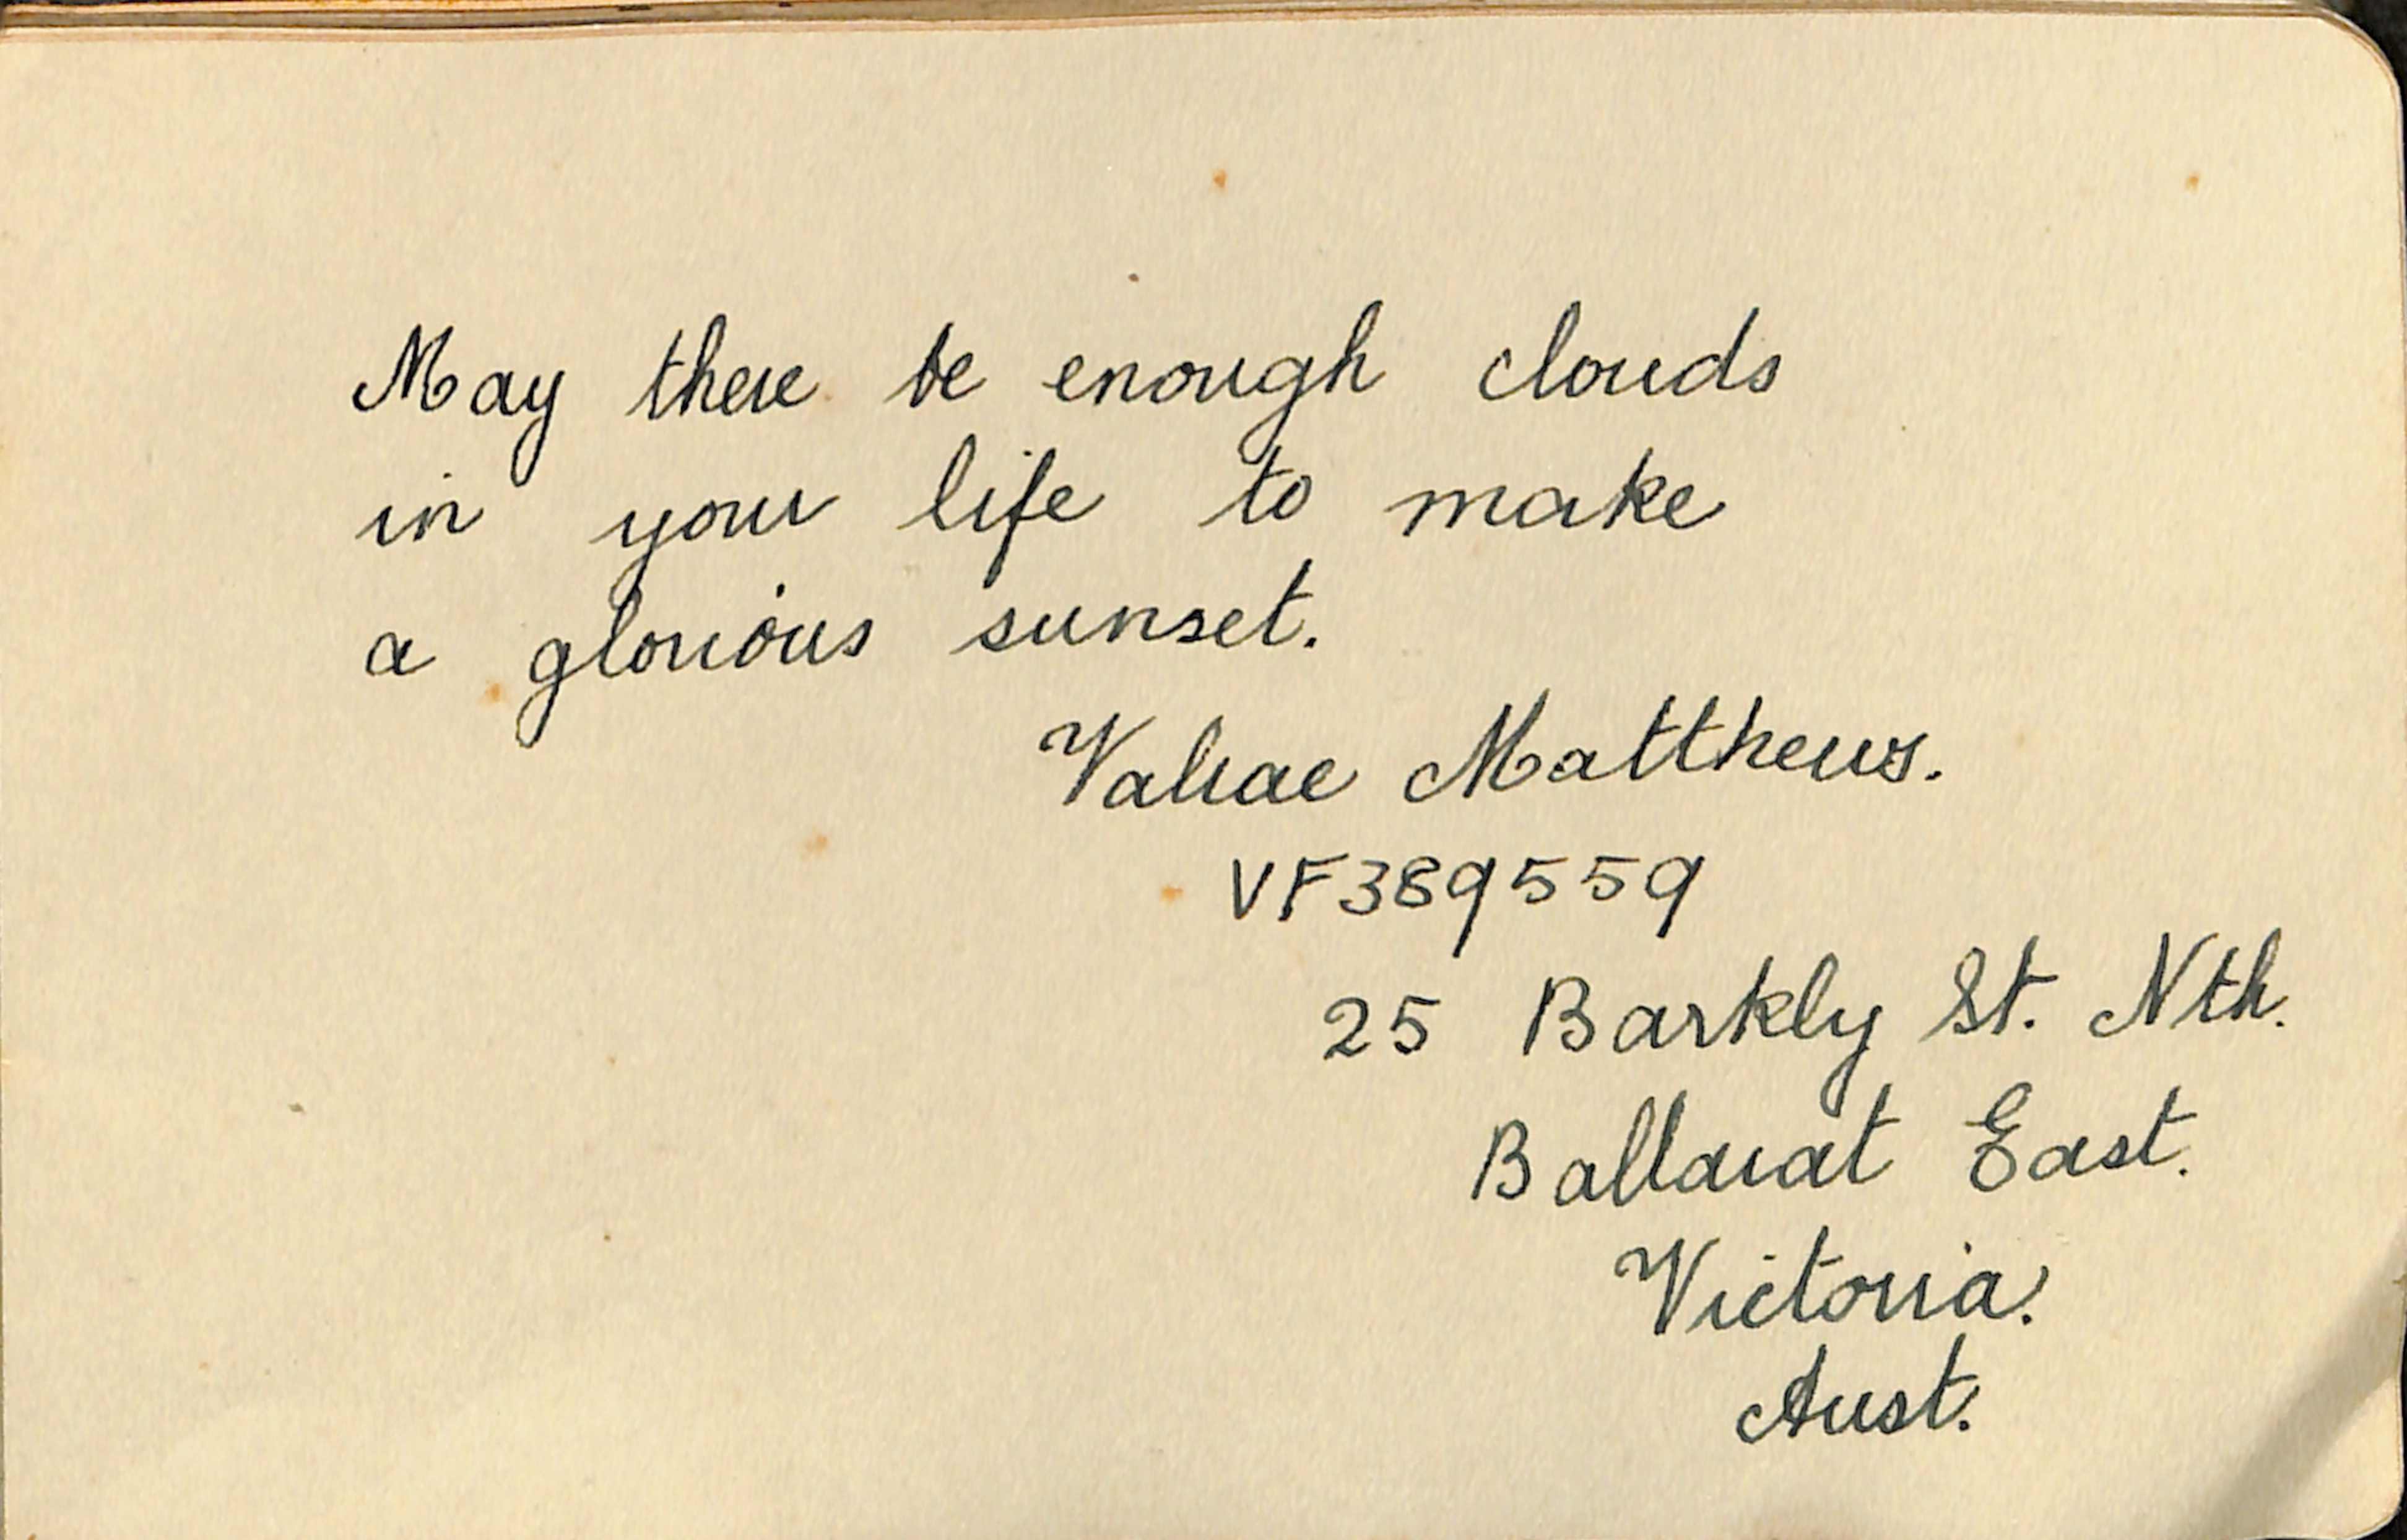 May there be enough clouds
in your life to make
a glorious sunset.
Valrae Matthews.
VF389559
25 Barkly St. Nth.
Ballarat East.
Victoria.
Aust.